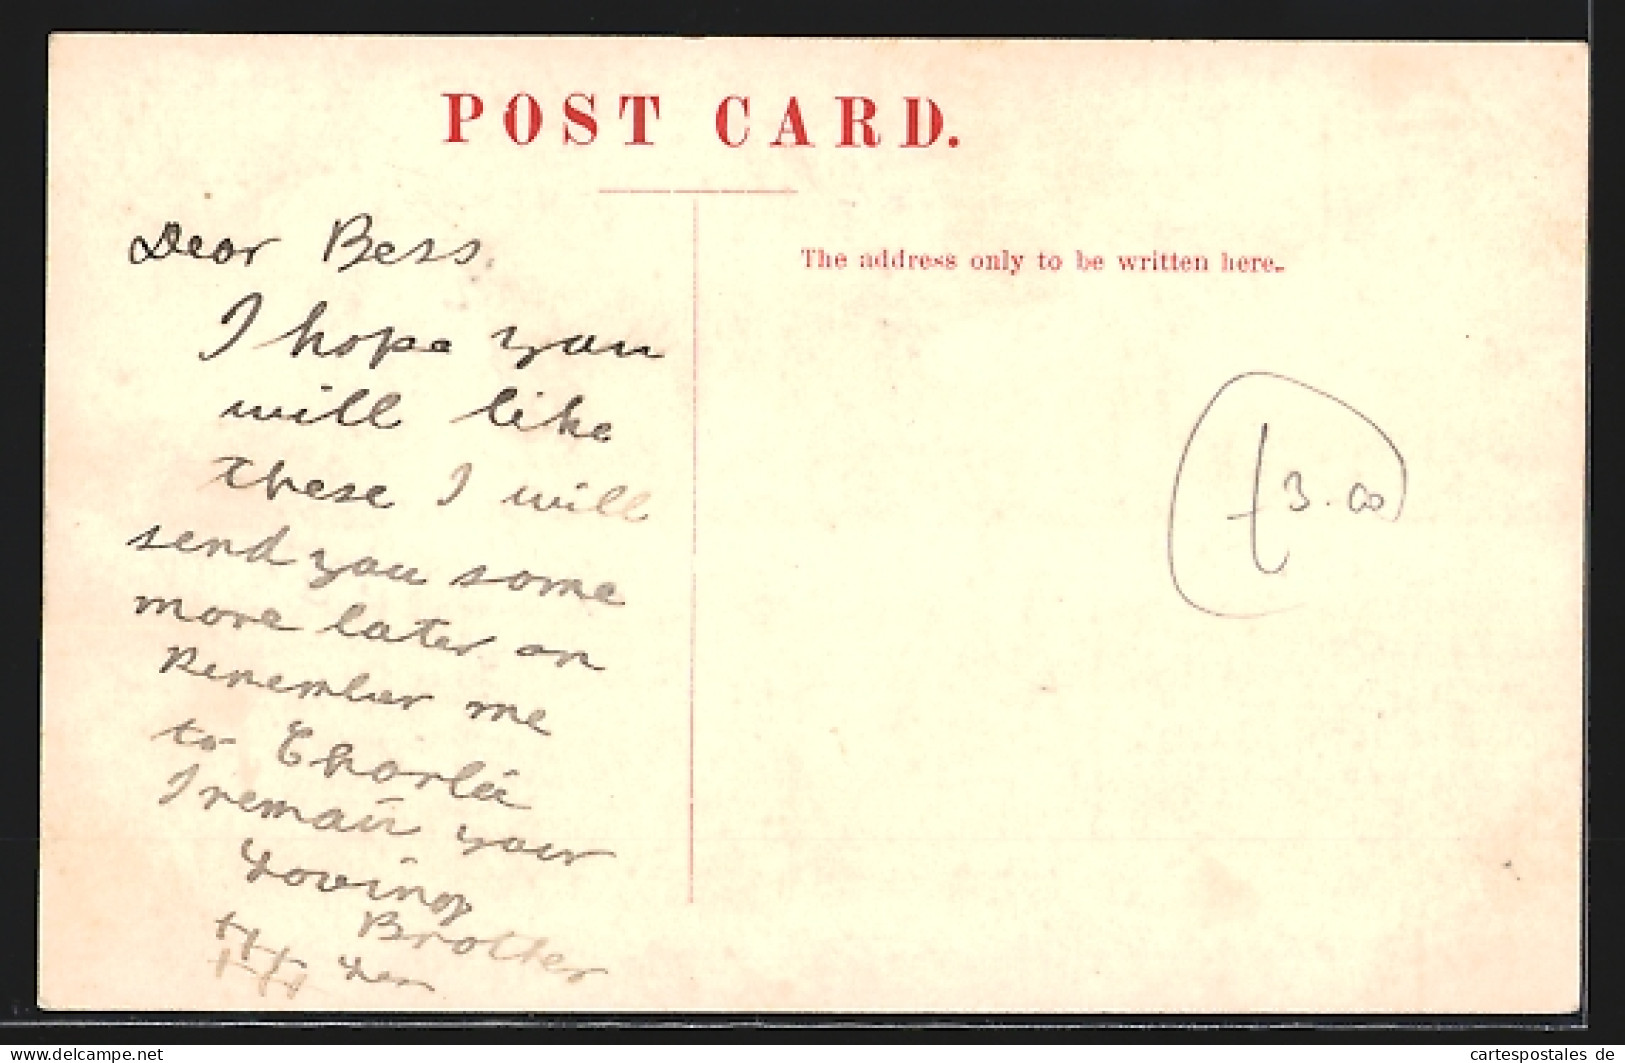 POST CARD.
The address only to be written here.
Dear Bess.
I hope you
will like
these I will
send you some
more later on
Remember me
to Charlie
I remain your
Loving
Brother
Len
£3.00
www.cartespostales.de
cartespostales de